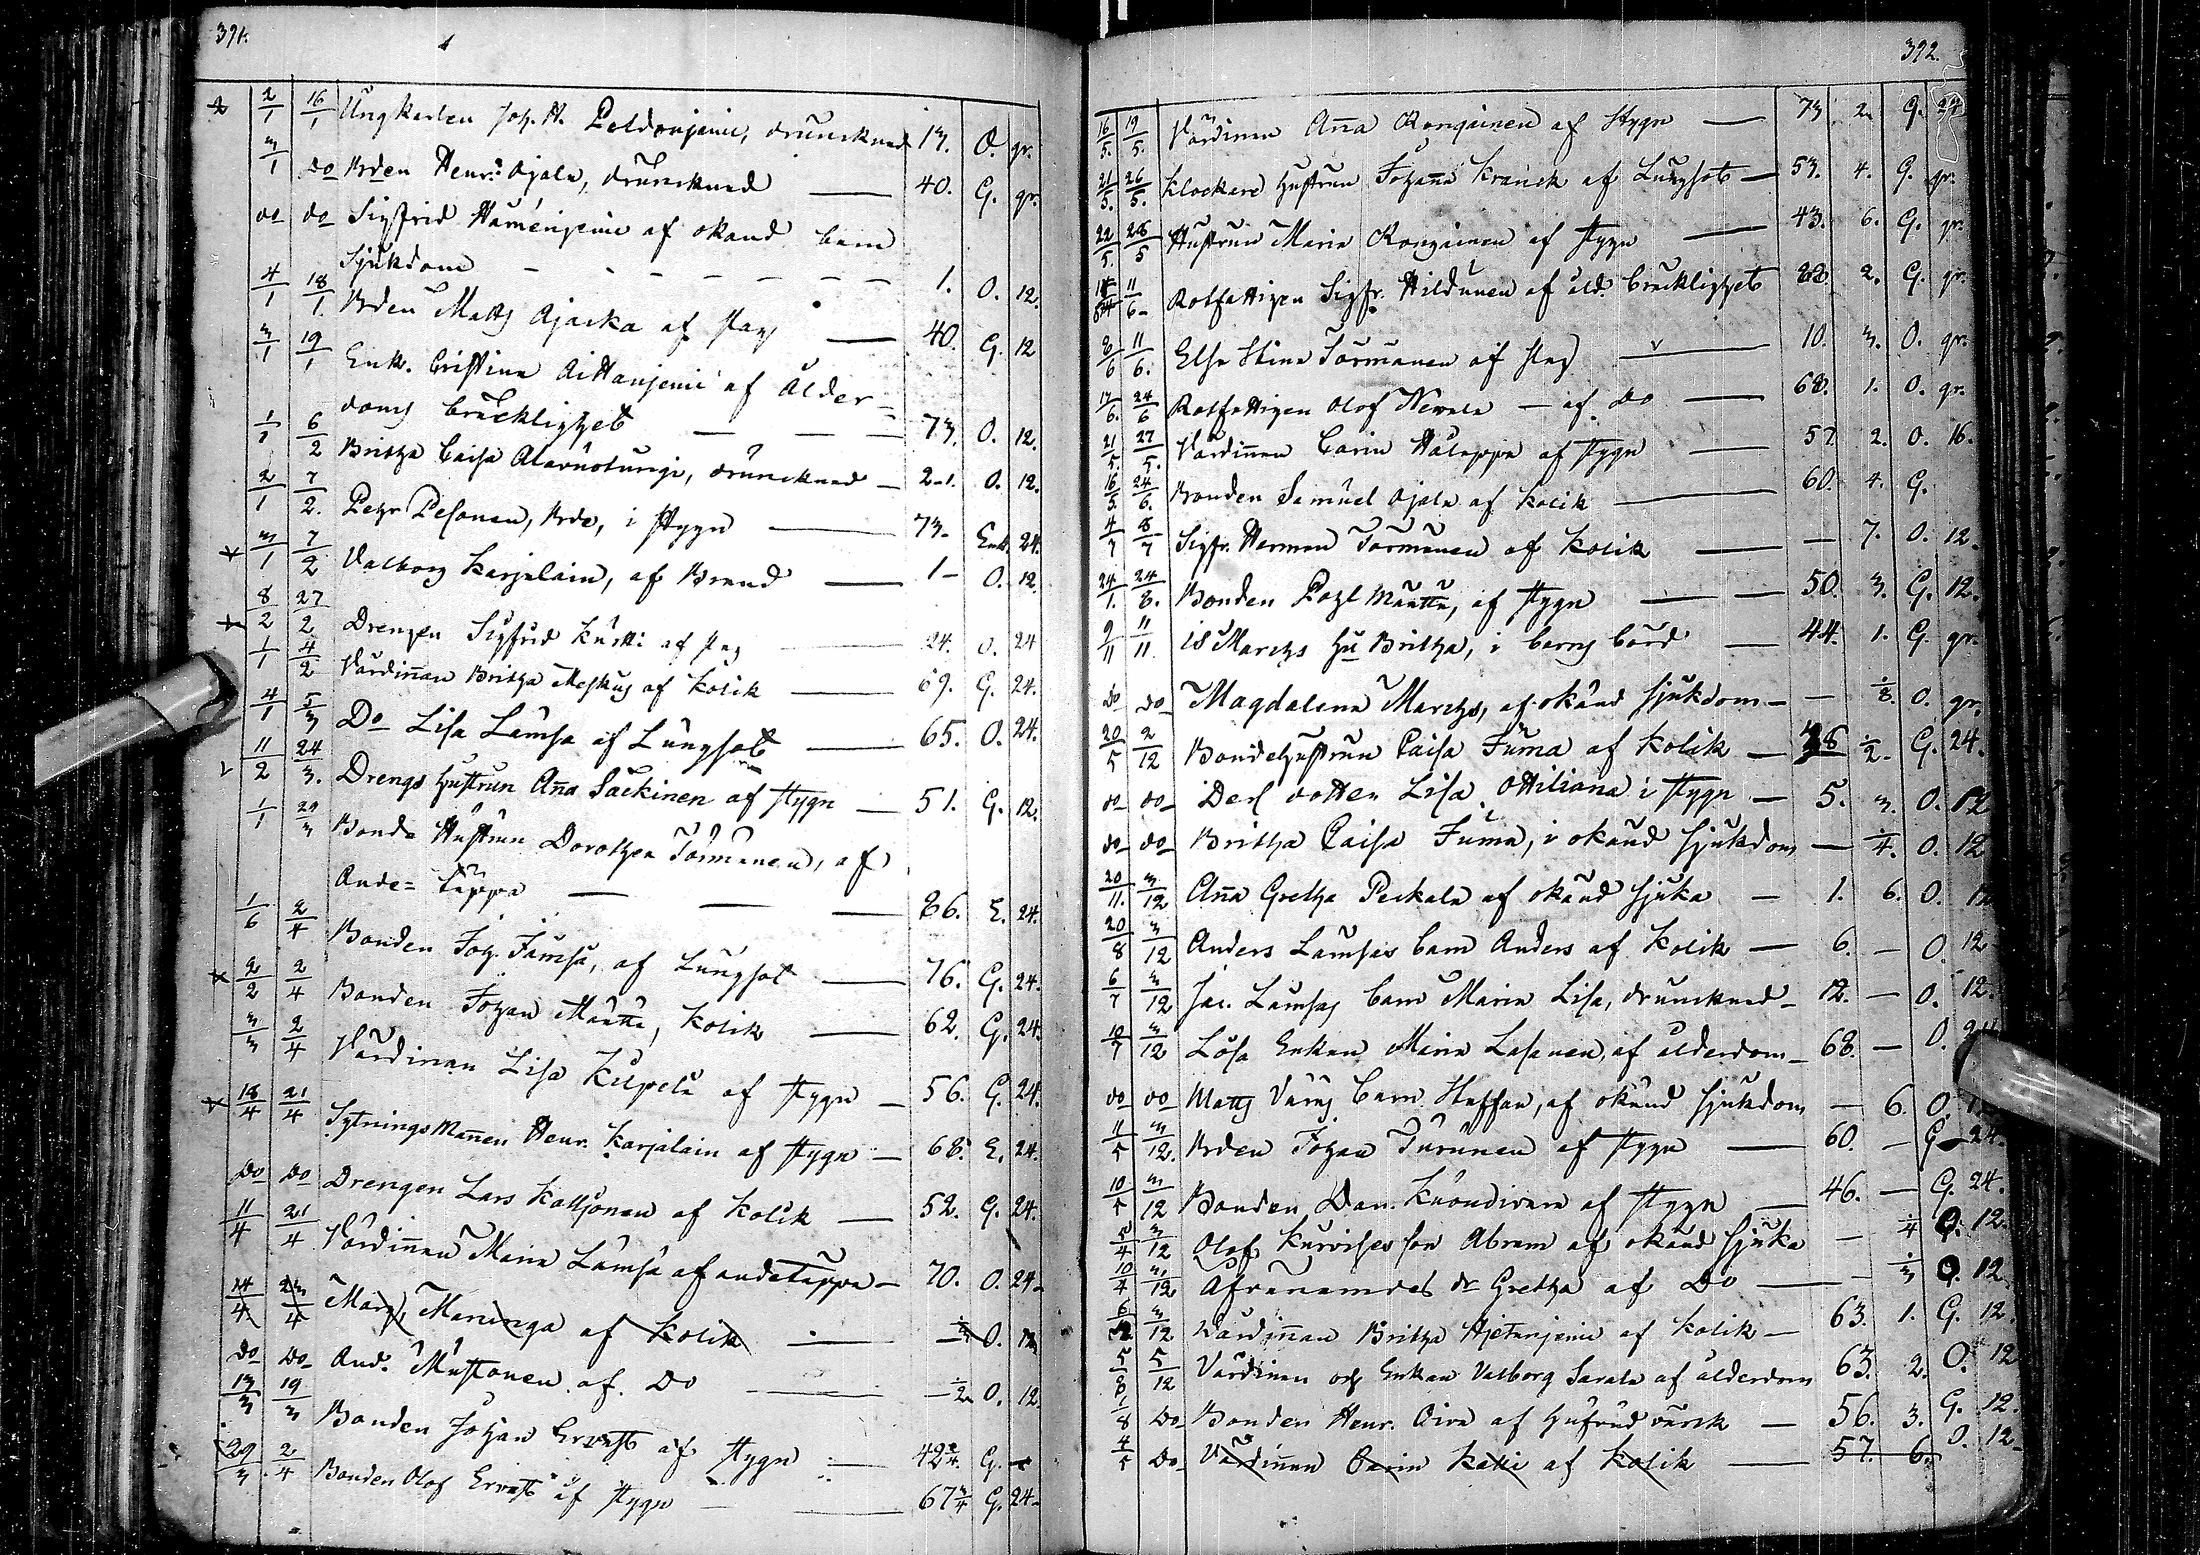 391.
2/1 16/1 Ungkarlen Joh. H. Peldonjemi, drunknad 13. O. gr.
3/1 do Bden Henr: Ojala, drunknad — 40. G. gr.
do do Sigfrid Hämenjemi af okänd barn
Sjukdom - - - 1. O. 12.
4/1 18/1 Bden Matts Ajaska af Hag — 40. G. 12
3/1 19/1 Enk. Cristina Aittanjemi af Ålder=
doms bräcklighet — 73. O. 12.
1/1 6/2 Britha Caisa drunknad — 2-1. O. 12.
2/1 7/2 Pehr Pesonen, Bde, i Stygn — 73. Enk. 24.
3/1 7/2 Valborg Karjalain, af Brand — 1- O. 12
8/2 27/2 Drengen Sigfrid Kurtti af — 24. O. 24
1/1 4/2 Värdinnan Britha Meskus af Kolik — 69. G. 24.
4/1 5/3 Do Lisa Lämsa af Lungsot — 65. O. 24.
11/2 24/3 Drengs hustrun Anna Säckinen af Stygn — 51. G. 12.
1/1 Bonde Hustrun Dorothea Törmänen, af
Ande= täppa — 86. E. 24.
1/6 2/4 Bonden Joh. Jämsä, af Lungsot — 76. G. 24.
2/2 2/4 Bonden Johan Määttä, Kolik — 62. G. 24.
3/3 2/4 Värdinan Lisa Kilpelä af Stygn — 56. G. 24.
18/4 21/4 Sytnings Mannen Henr. Karjalain af Stygn — 68. E. 24.
Do Do Drengen Lars Kattjonen af Kolik — 52. G. 24.
11/4 21/4 Värdinnan Maria Lämsä af andetäppa — 70. O. 24-
14/4 Marg, Maninga af Kolik — O. 12
Do Do And. Mustonen af Do — 1/2 O. 12.
13/3 19/3 Bonden Johan Ervast af Stygn — 42 2/4. G. -
29/3 2/4 Bonden Olof Ervast af Stygn — 67 3/4 G. 24-
392.
16/5. 19/5. Värdinan Anna Rongainen af Stygn — 73 2. G. 24
21/5. 26/5. Klockare Hustrun Johanna Kranck af Lungsot — 53. 4. G. gr.
22/5. 28/5 Hustrun Maria Rongainen af Stygn — 43. 6. G. gr.
11/6- Rotfattigen Sigfr. Hildunen af ålds. bräcklighet 82. 2. G. gr.
8/6 11/6. Elsa Stina Törmänen af — 10. 3. O. gr.
17/6. 24/6 Rotfattigen Olof Newala — af Do — 68. 1. O. gr.
21/5. 27/5. Värdinnan Carin af Stygn — 57. 2. O. 16.
16/5. 24/6. Bonden Samuel Ojala af Kolik — 60. 4. G.
4/7 8/7 Sigfr. Herman Törmänen af Kolik — — 7. O. 12.
24/1. 24/8. Bonden Pohl Määttä, af Stygn — 50. 3. G. 12.
9/11 11/11 Is Marchs Hu Britha, i barns börd — 44. 1. G. gr.
Do Do Magdalena Marchs, af okänd sjukdom — — 1/8. O. gr.
20/5 2/12 Bondehustrun Caisa Juma af Kolik — 38 1/2. G. 24.
do do Ders dotter Lisa Ottiliana i Stygn — 5. 3. O. 12
do do Britha Caisa Juma, i okänd sjukdom — 1/4. O. 12
20/11. 3/12 Anna Gretha Peckala af okänd sjuka — 1. 6. O. 12
20/8 3/12 Anders Lämsäs barn Anders af Kolik — 6. — O. 12
6/7 3/12 Jac. Lämsäs barn Maria Lisa, drunknad — 12. — O. 12.
10/7 3/12 Lösa Enkan Maria Lasanen, af ålderdom — 68. — O. 24
do do Matts barn Staffan, af okänd sjukdom — 6. O. 12
11/5 3/12. Bden Johan Turunen af Stygn — 60. — G 24.
10/5 3/12 Bonden Dan. af Stygn — 46. — G. 24.
5/4 3/12 Olof son Abram af okänd sjuka — 1/4 O. 12.
10/4 3/12 Afvanämdes dr Gretha af Do — 1/3 O. 12.
3/12 Värdinnan Britha Hjetanjemi af Kolik — 63. 1. G. 12.
5/8 5/12 Värdinan och Enkan Valborg Sarala af ålderdom 63. 2. O. 12
1/8 Do Bonden Henr. Oiva af hufvud värk — 56. 3. G. 12.
4/5 Do Värdinnan Carin Katti af Kolik — 57. 6. O. 12